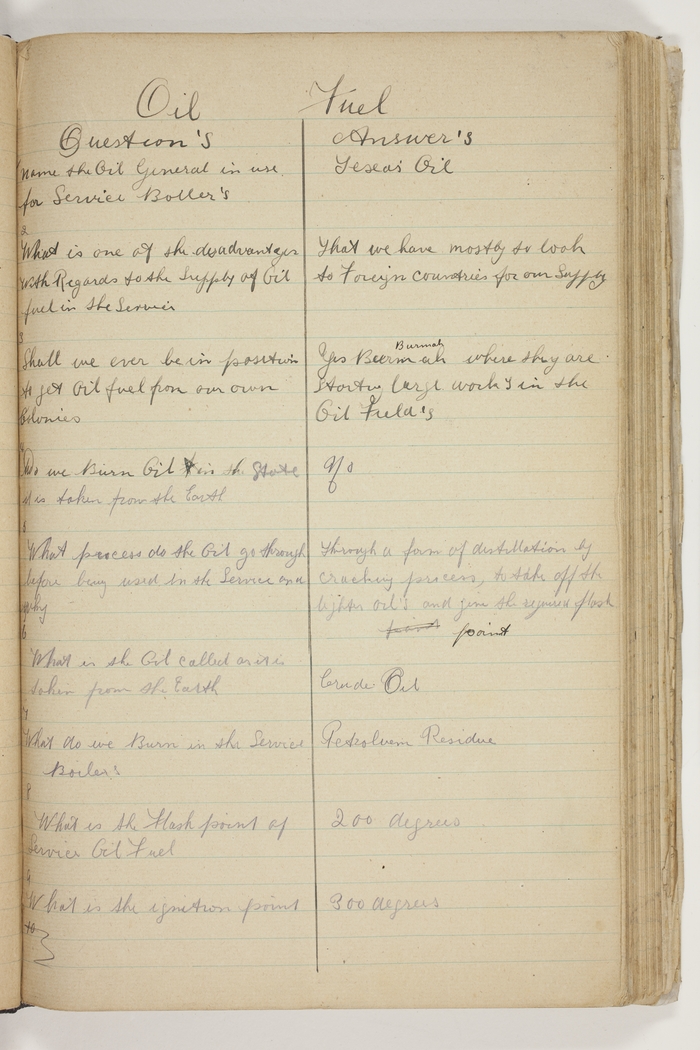 Oil Fuel
Question's
Answer's
name the Oil General in use
for Service Boiler's
Texas Oil
2
What is one of the disadvantages
with Regards to the Supply of Oil
fuel in the Service
That we have mostly to look
to Foreign countries for our Supply
3
Shall we ever be in position
to get Oil fuel from our own
Colonies
Burmah
Yes Beermah where they are
starting large work's in the
Oil Field's
Do we Burn Oil in the State
it is taken from the Earth
No
5
What process do the Oil go through
before being used in the Service and
why
Through a form of distillation by
cracking process, to take off the
lighter oil's and give the required flash
point point
6
What is the Oil called as it is
taken from the Earth
Crude Oil
7
What do we Burn in the Service
Boiler's
Petroluem Residue
8
What is the Flash point of
Service Oil Fuel
200 degrees
9
What is the ignition point
300 degrees
10